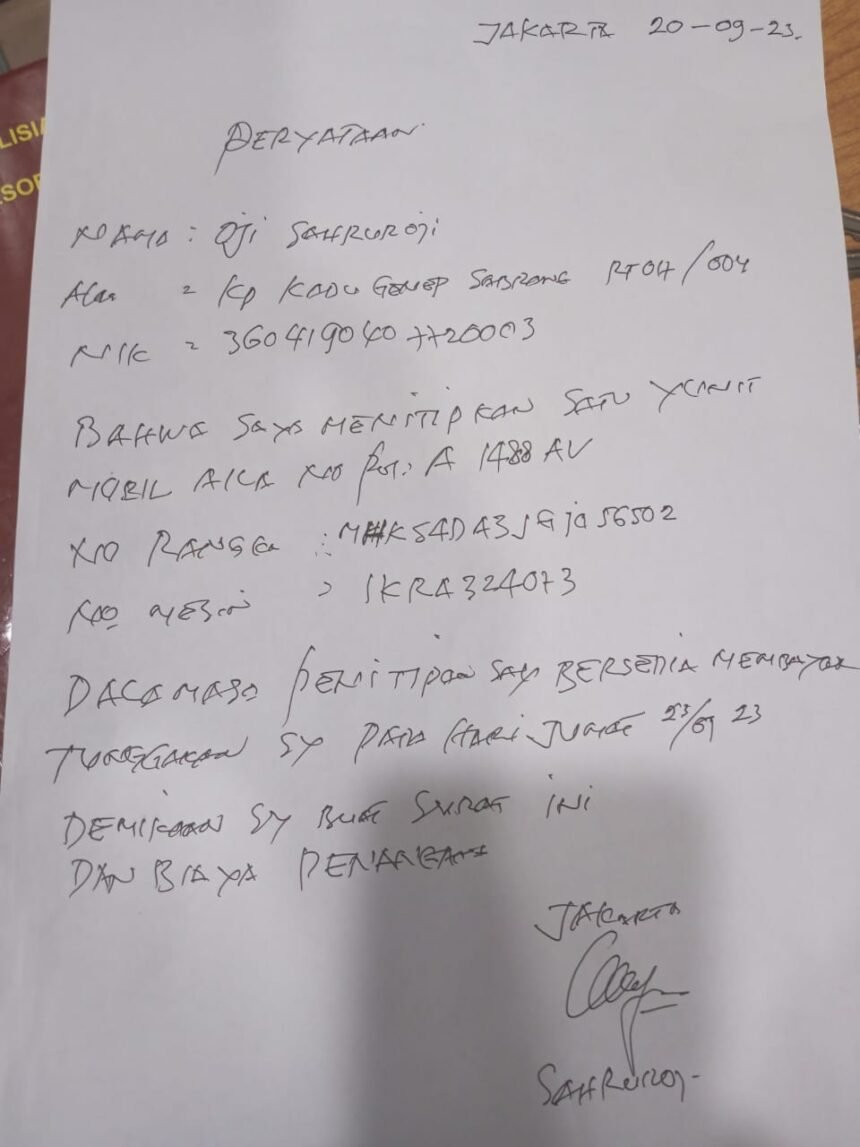 JAKARTA 20-09-23.
LISIA
SOR
PERYATAAN
NAMA : OJI SAHRUROJI
Alam = KP KADU GENEP SABRANG RT04/004
NIK = 3604190407720003
BAHWA SAYA MENITIPKAN SATU YUNIT
MOBIL AILA NO POL: A 1488 AV
NO RANGKA : MHKS4DA3JGJ056502
NO MESIN > 1KRA324073
PENITIPAN SAY BERSEDIA MEMBAYAR
TUNGGAKAN SY PADA HARI JUMAT 23/09 23
DEMIKIAN SY BUAT SURAT INI
DAN BIAYA PENANGAN
JAKARTA
SAHRUROJ-